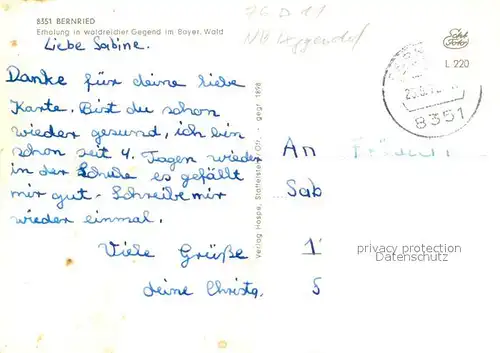 8351 BERNRIED
Erholung in waldreicher Gegend im Bayer. Wald
Liebe Sabine.
Danke für deine liebe
Karte. Bist du schon
wieder gesund, ich bin
schon seit 4. Tagen wieder
in der Schule es gefällt
mir gut. Schreibe mir
wieder einmal.
Viele Grüße
deine Christa.
Verlag Hospe, Staffelstein / Ofr. - gegr. 1898
76 D 11
Echt
Foto
L 220
8351
An
Sab
1
5
privacy protection
Datenschutz